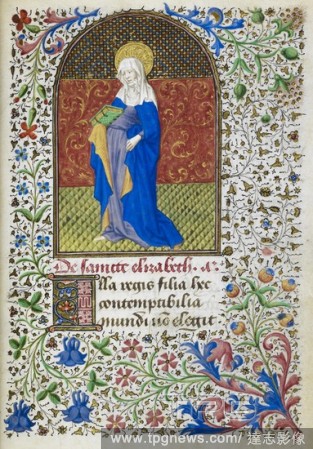 De sancte elizabeth. a.
Illa regis filia hec
contemptibilia
mundi nō elegit
www.tpgnews.com/達志影像